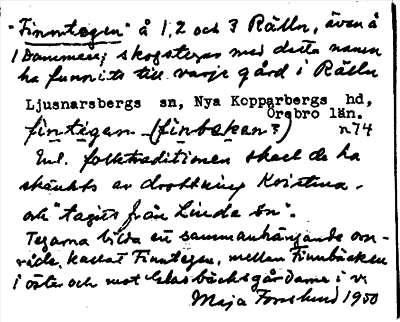 "Finntegen" å 1, 2 och 3 Rälln, även å
1 Dammen; skogstegar med detta namn
ha funnits till varje gård i Rälln
Ljusnarsbergs sn, Nya Kopparbergs hd,
Örebro län.
fintegen (finbaken?) n74
Enl. folktraditionen skall de ha
skänkts av drottning Kristina.
och "tagits från Linde sn".
Tegarna bilda ett sammanhängande om-
råde, kallat Finntegen, mellan Finnbäcken
i öster och mot Glasbäcksgårdarne i v.
Maja Forslund 1930